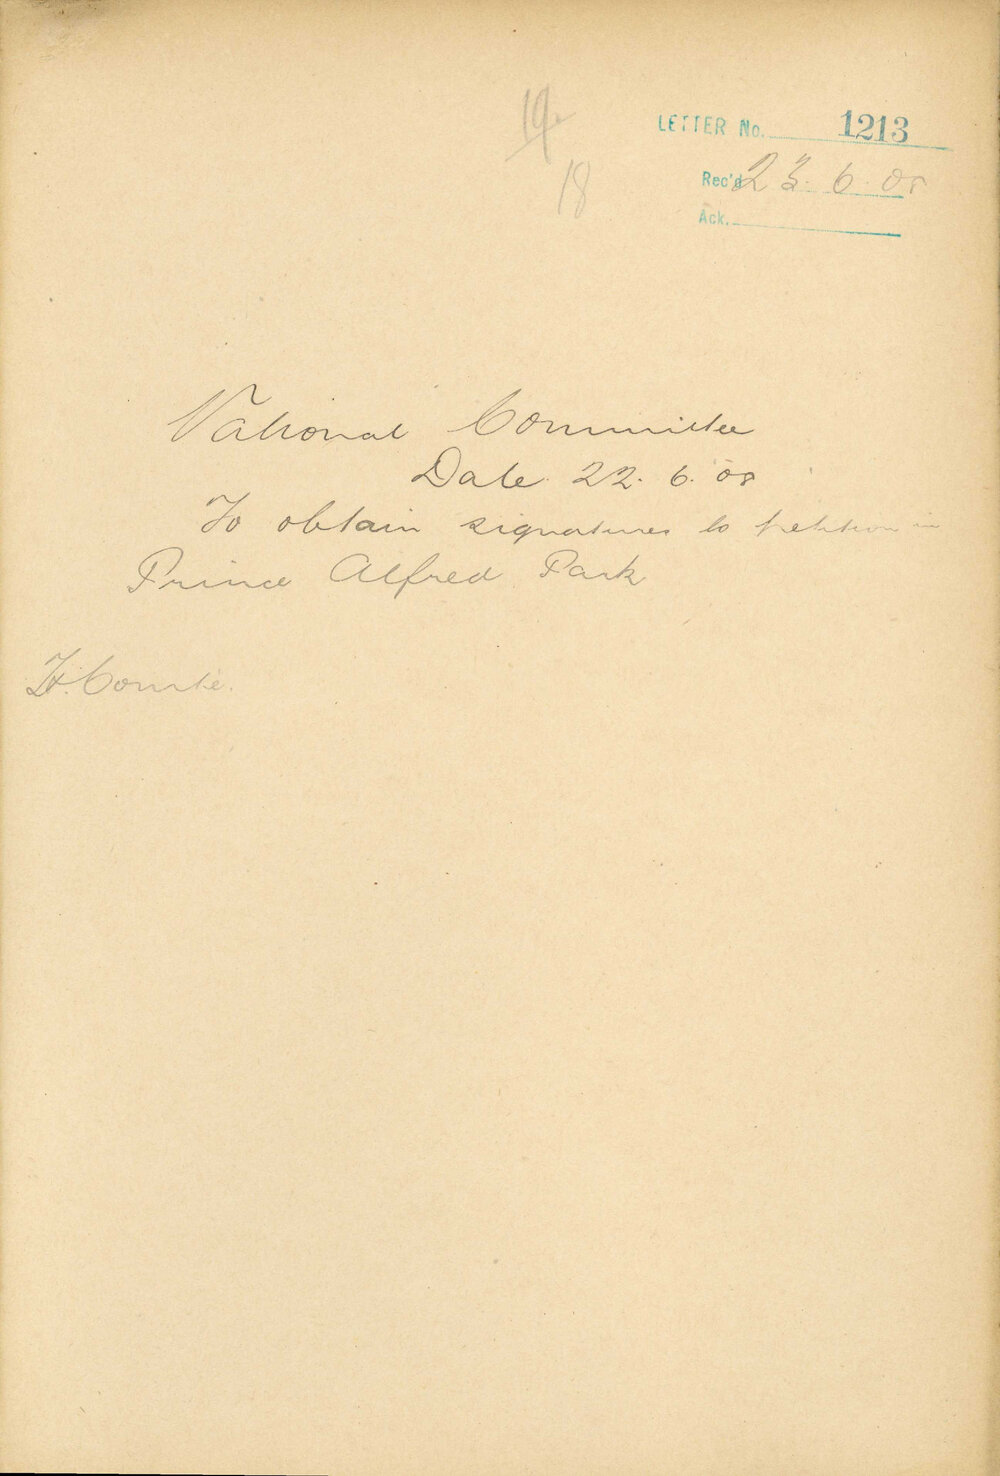 19
18
LETTER No. 1213
Rec'd 23.6.08
Ack.
National Committee
Date. 22.6.08
To obtain signatures to petition in
Prince Alfred Park